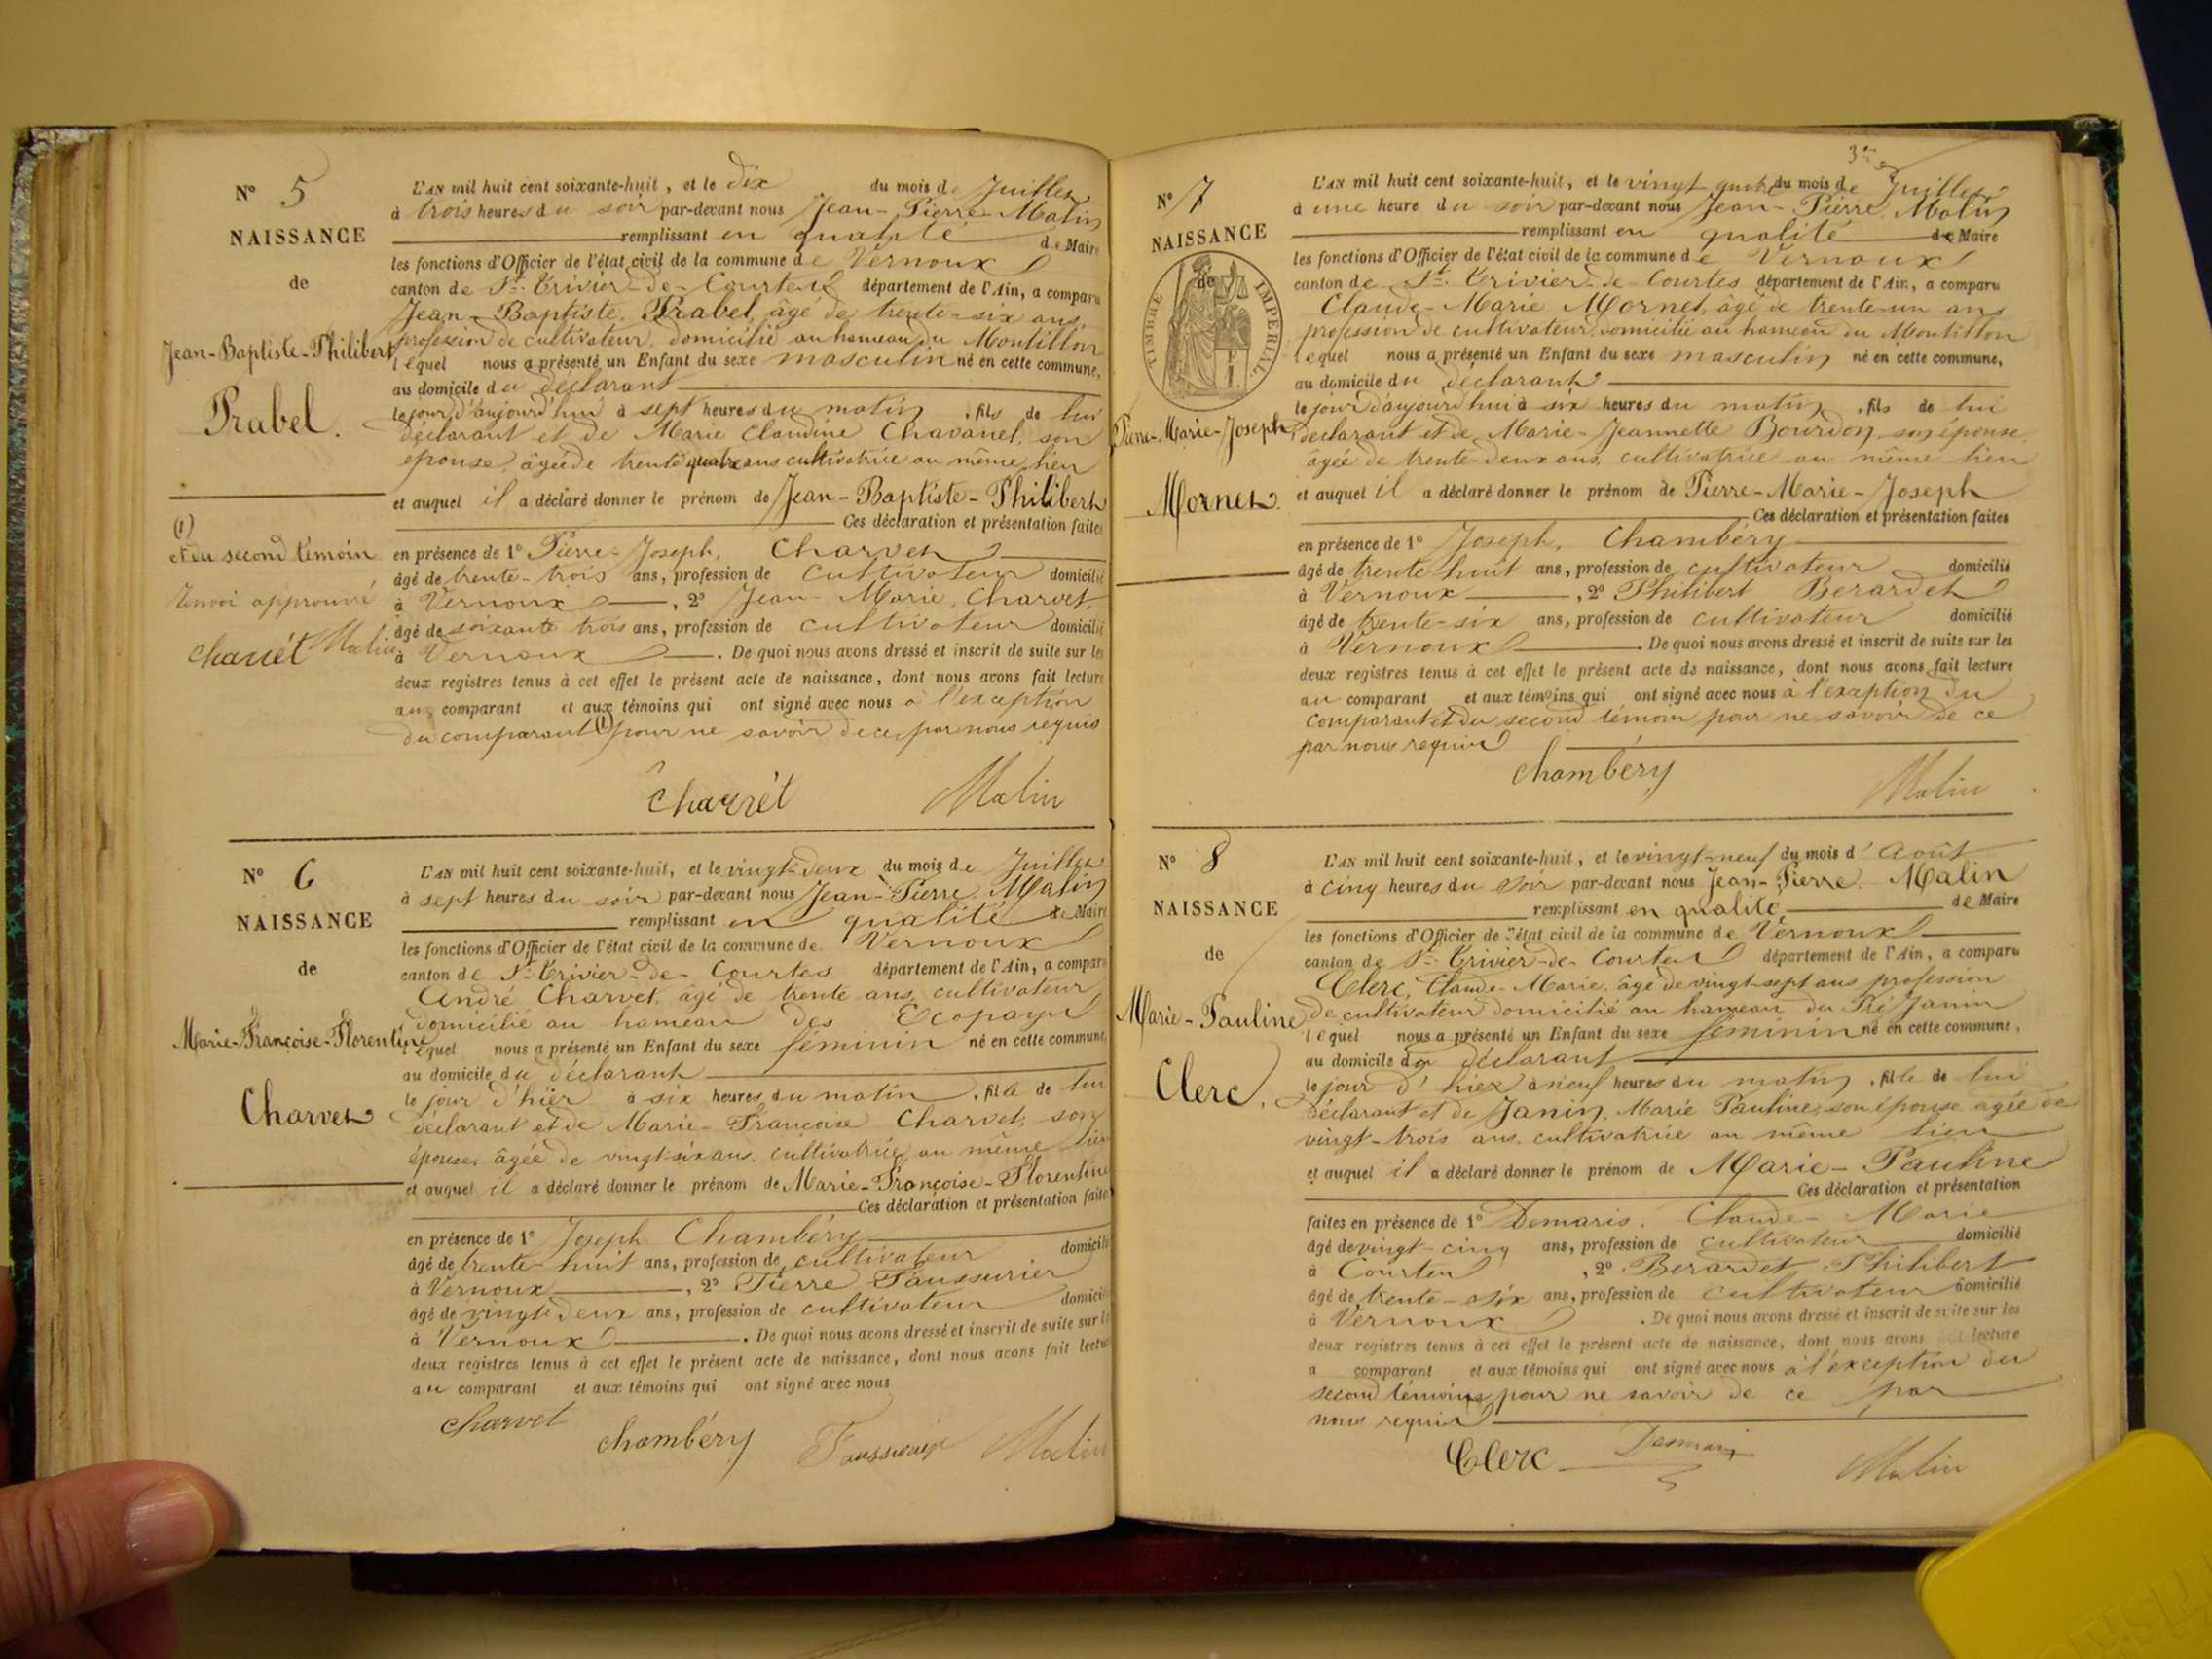 N° 5
NAISSANCE
de
Jean-Baptiste-Philibert
Prabel.
(1)
et du second témoin
Renvoi approuvé
Charvét Malin
L'AN mil huit cent soixante-huit, et le dix du mois de Juillet
à trois heures du soir par-devant nous Jean-Pierre Malin
remplissant en qualité de Maire
les fonctions d'Officier de l'état civil de la commune de Vernoux
canton de St. Trivier-de-Courtes département de l'Ain, a comparu
Jean-Baptiste Prabel, âgé de trente-six ans
profession de cultivateur, domicilié au hameau du Montillon
lequel nous a présenté un Enfant du sexe masculin né en cette commune,
au domicile du déclarant
le jour d'aujourd'hui à sept heures du matin, fils de lui
déclarant et de Marie Claudine Chavanel, son
épouse, âgée de trente quatre ans cultivatrice au même lieu
et auquel il a déclaré donner le prénom de Jean-Baptiste-Philibert
Ces déclaration et présentation faites
en présence de 1° Pierre-Joseph, Charvet
âgé de trente-trois ans, profession de cultivateur domicilié
à Vernoux, 2° Jean-Marie, Charvet,
âgé de soixante trois ans, profession de cultivateur domicilié
à Vernoux. De quoi nous avons dressé et inscrit de suite sur les
deux registres tenus à cet effet le présent acte de naissance, dont nous avons fait lecture
au comparant et aux témoins qui ont signé avec nous à l'exception
du comparant (1) pour ne savoir de ce par nous requis
Charvét Malin
N° 6
NAISSANCE
de
Marie-Françoise-Florentine
Charvet
L'AN mil huit cent soixante-huit, et le vingt-deux du mois de Juillet
à sept heures du soir par-devant nous Jean-Pierre Malin
remplissant en qualité de Maire
les fonctions d'Officier de l'état civil de la commune de Vernoux
canton de St. Trivier-de-Courtes département de l'Ain, a comparu
André Charvet, âgé de trente ans, cultivateur
domicilié au hameau des Ecopayn
lequel nous a présenté un Enfant du sexe féminin né en cette commune,
au domicile du déclarant
le jour d'hier à six heures du matin, fille de lui
déclarant et de Marie-Françoise Charvet, son
épouse, âgée de vingt-six ans, cultivatrice au même lieu
et auquel il a déclaré donner le prénom de Marie-Françoise-Florentine
Ces déclaration et présentation faites
en présence de 1° Joseph Chambéry
âgé de trente-huit ans, profession de cultivateur domicilié
à Vernoux, 2° Pierre Faussurier
âgé de vingt-deux ans, profession de cultivateur domicilié
à Vernoux. De quoi nous avons dressé et inscrit de suite sur les
deux registres tenus à cet effet le présent acte de naissance, dont nous avons fait lecture
au comparant et aux témoins qui ont signé avec nous
Charvet Chambéry Faussurier Malin
3e
N° 7
NAISSANCE
de
TIMBRE IMPERIAL
Pierre-Marie-Joseph
Mornet
L'AN mil huit cent soixante-huit, et le vingt quatre du mois de Juillet
à une heure du soir par-devant nous Jean-Pierre Malin
remplissant en qualité de Maire
les fonctions d'Officier de l'état civil de la commune de Vernoux
canton de St. Trivier-de-Courtes département de l'Ain, a comparu
Claude-Marie Mornet, âgé de trente-un ans
profession de cultivateur domicilié au hameau du Montillon
lequel nous a présenté un Enfant du sexe masculin né en cette commune,
au domicile du déclarant
le jour d'aujourd'hui à six heures du matin, fils de lui
déclarant et de Marie-Jeannette Bourdon, son épouse,
âgée de trente-deux ans, cultivatrice au même lieu
et auquel il a déclaré donner le prénom de Pierre-Marie-Joseph
Ces déclaration et présentation faites
en présence de 1° Joseph, Chambéry
âgé de trente huit ans, profession de cultivateur domicilié
à Vernoux, 2° Philibert Berardet
âgé de trente-six ans, profession de cultivateur domicilié
à Vernoux. De quoi nous avons dressé et inscrit de suite sur les
deux registres tenus à cet effet le présent acte de naissance, dont nous avons fait lecture
au comparant et aux témoins qui ont signé avec nous à l'exception du
comparant et du second témoin pour ne savoir de ce
par nous requis
Chambéry Malin
N° 8
NAISSANCE
de
Marie-Pauline
Clerc,
L'AN mil huit cent soixante-huit, et le vingt-neuf du mois d'Août
à cinq heures du soir par-devant nous Jean-Pierre Malin
remplissant en qualité de Maire
les fonctions d'Officier de l'état civil de la commune de Vernoux
canton de St. Trivier-de-Courtes département de l'Ain, a comparu
Clerc, Claude-Marie, âgé de vingt-sept ans profession
de cultivateur domicilié au hameau du Pré Janin
lequel nous a présenté un Enfant du sexe féminin né en cette commune,
au domicile du déclarant
le jour d'hier à neuf heures du matin, fille de lui
déclarant et de Janin, Marie Pauline, son épouse âgée de
vingt-trois ans, cultivatrice au même lieu
et auquel il a déclaré donner le prénom de Marie-Pauline
Ces déclaration et présentation
faites en présence de 1° Demaris, Claude-Marie
âgé de vingt-cinq ans, profession de cultivateur domicilié
à Courtes, 2° Berardet Philibert
âgé de trente-six ans, profession de cultivateur domicilié
à Vernoux. De quoi nous avons dressé et inscrit de suite sur les
deux registres tenus à cet effet le présent acte de naissance, dont nous avons lecture
a comparant et aux témoins qui ont signé avec nous à l'exception du
second témoins pour ne savoir de ce par
nous requis
Clerc Demaris Malin